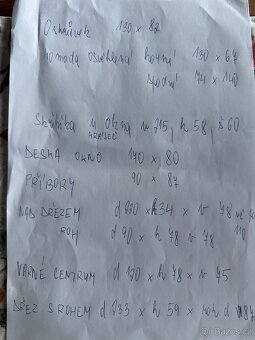 Ostrůvek 130 x 82
komoda osvětlená horní 130 x 67
spodní 74 x 140
Skříňka u okna v 215, h 58, š 60
DESKA OKNO 170 x 80
PŘÍBORY 90 x 87
NAD DŘEZEM d 230 x h 34 x v 78
ROH d 90 x h 78 v 78 110
VARNÉ CENTRUM d 170 x h 78 x v 75
DŘEZ S ROHEM d 233 x h 59 x roh d 187